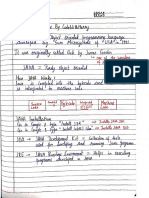 By Lakshit
Object oriented programming language
developed by "Sun Microsystems" of "USA" in 1991
It was originally called Oak by James Gosling
one of the
JAVA = Purely Object Oriented
How JAVA Works!
Java is compiled into the bytecode and
is interpreted to machine code.
Source Code
Bytecode
Machine Code
JAVA Installation
Go to Google & type "Install JDK" → Installs JAVA JDK
Go to Google & type "Install
JDK → JAVA Development Kit = Collection of tools
used for developing and running
JAVA programs
JRE → JAVA Runtime Environment = Helps in executing
programs developed in JAVA